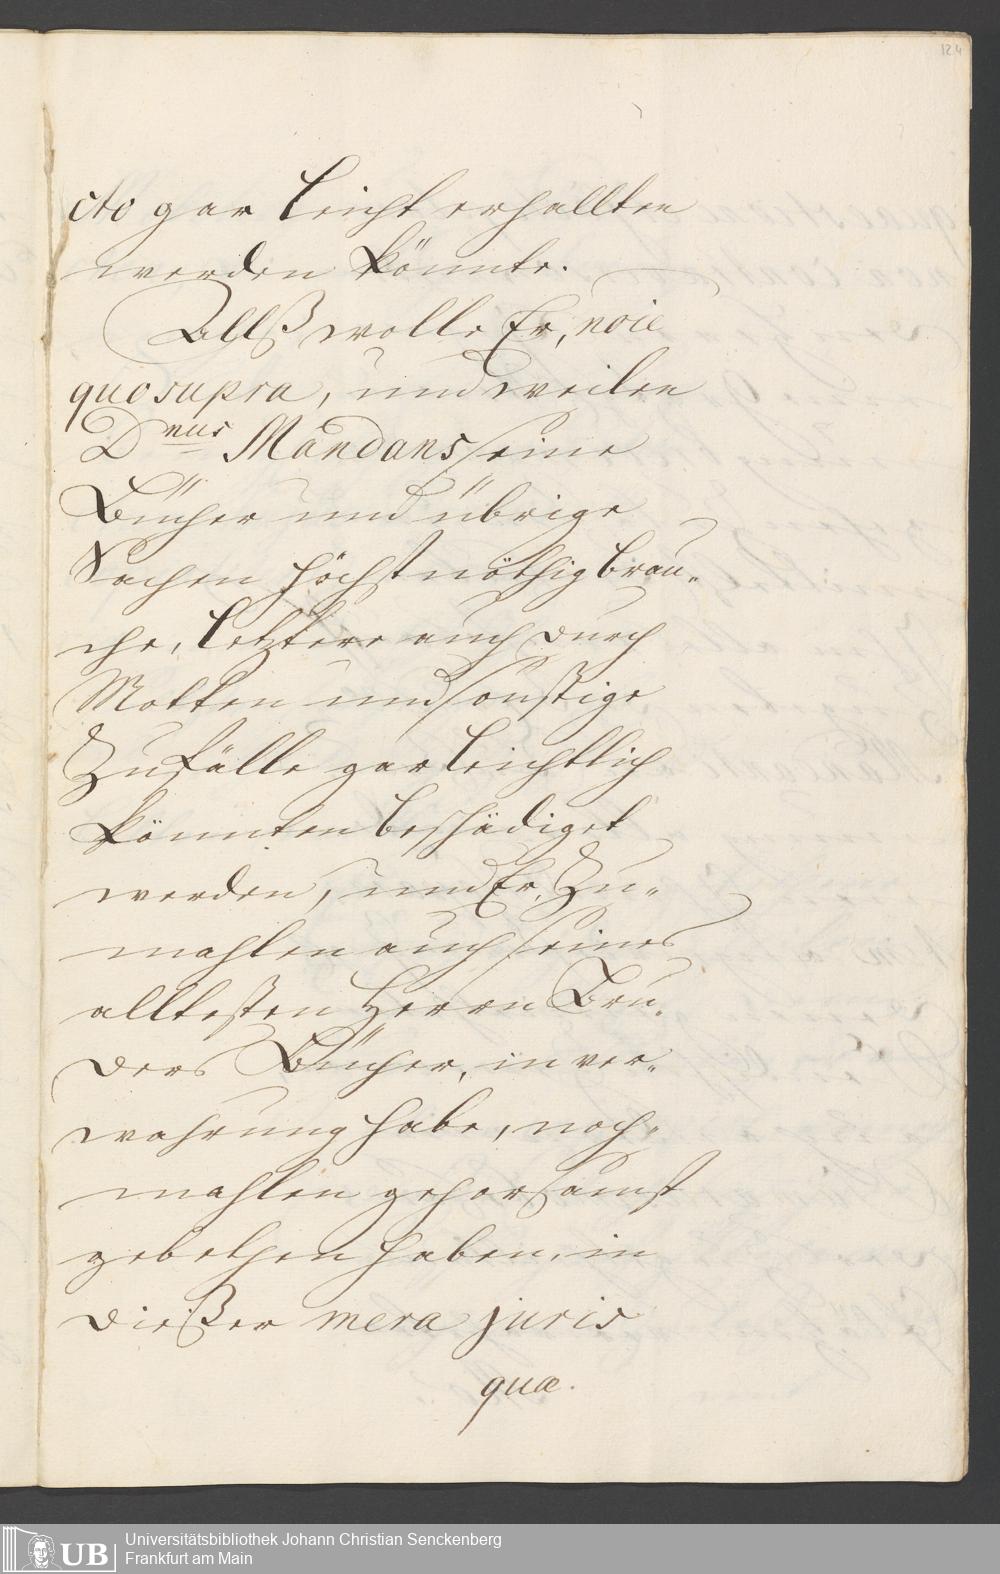 124
cto gar leicht erhallten
werden könnte.
Allß wolle Er, noie
quo supra, und weilen
Dnus Mandans seine
Bücher und übrige
Sachen höchstnöthig brau„
che, letztere auch durch
Motten und sonstige
Zufälle gar leichtlich
könnten beschädiget
werden, und Er, Zu„
mahlen auch seines
alltesten Herrn Bru„
ders Bücher, in ver„
wahrung habe, noch„
mahlen gehorsamst
gebethen haben, in
dießer mera juris
quæ.
UB
Universitätsbibliothek Johann Christian Senckenberg
Frankfurt am Main